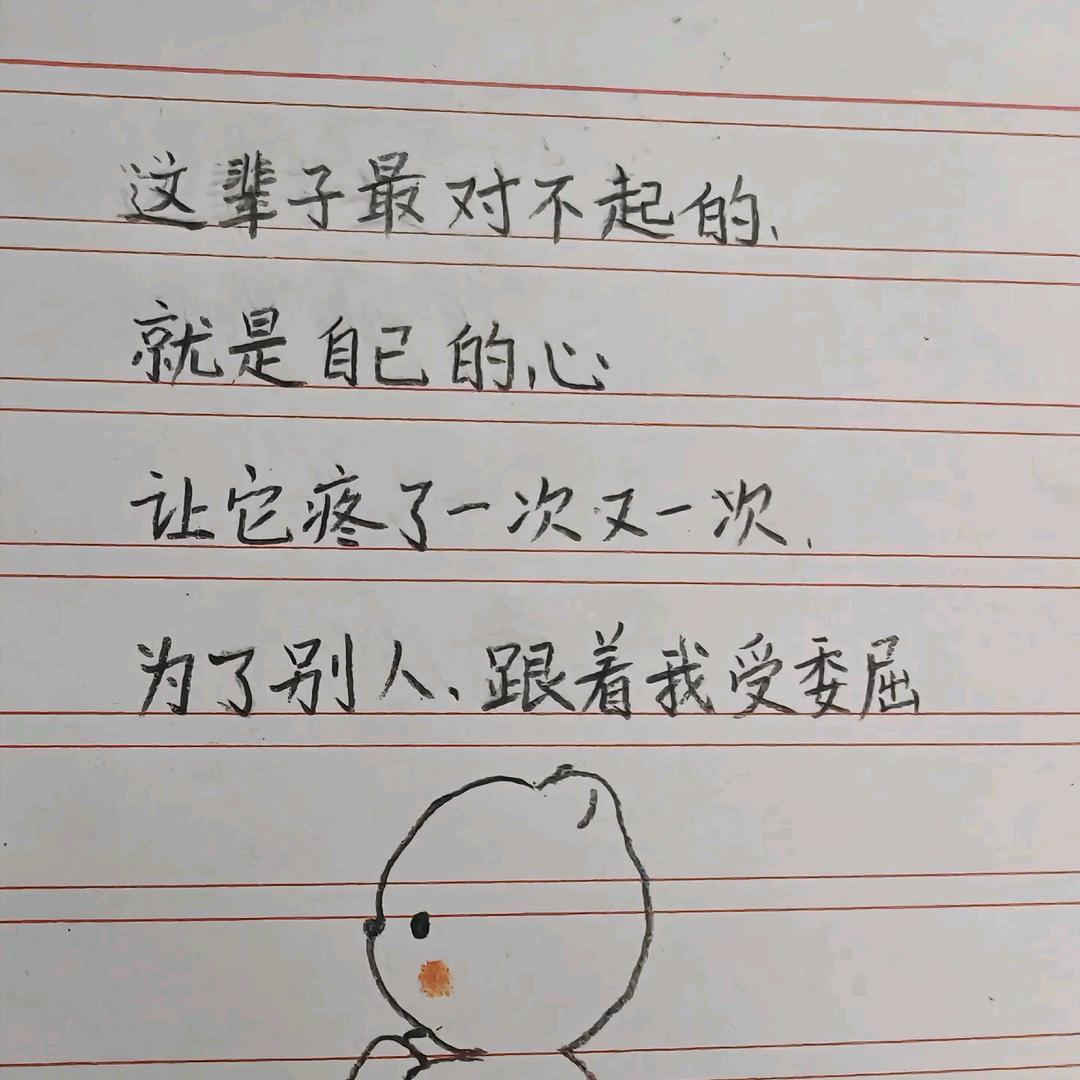 这辈子最对不起的、
就是自己的心
让它疼了一次又一次，
为了别人、跟着我受委屈